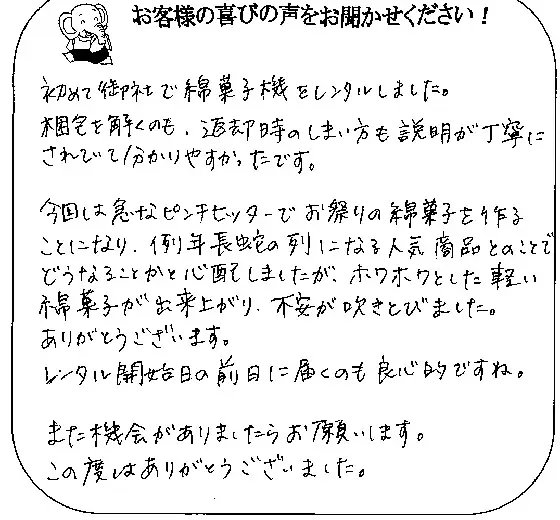 お客様の喜びの声をお聞かせください！
初めて御社で綿菓子機をレンタルしました。
梱包を解くのも、返却時のしまい方も説明が丁寧に
されていて分かりやすかったです。
今回は急なピンチヒッターでお祭りの綿菓子を作る
ことになり、例年長蛇の列になる人気商品とのことで
どうなることかと心配しましたが、ホワホワとした軽い
綿菓子が出来上がり、不安が吹きとびました。
ありがとうございます。
レンタル開始日の前日に届くのも良心的ですね。
また機会がありましたらお願いします。
この度はありがとうございました。